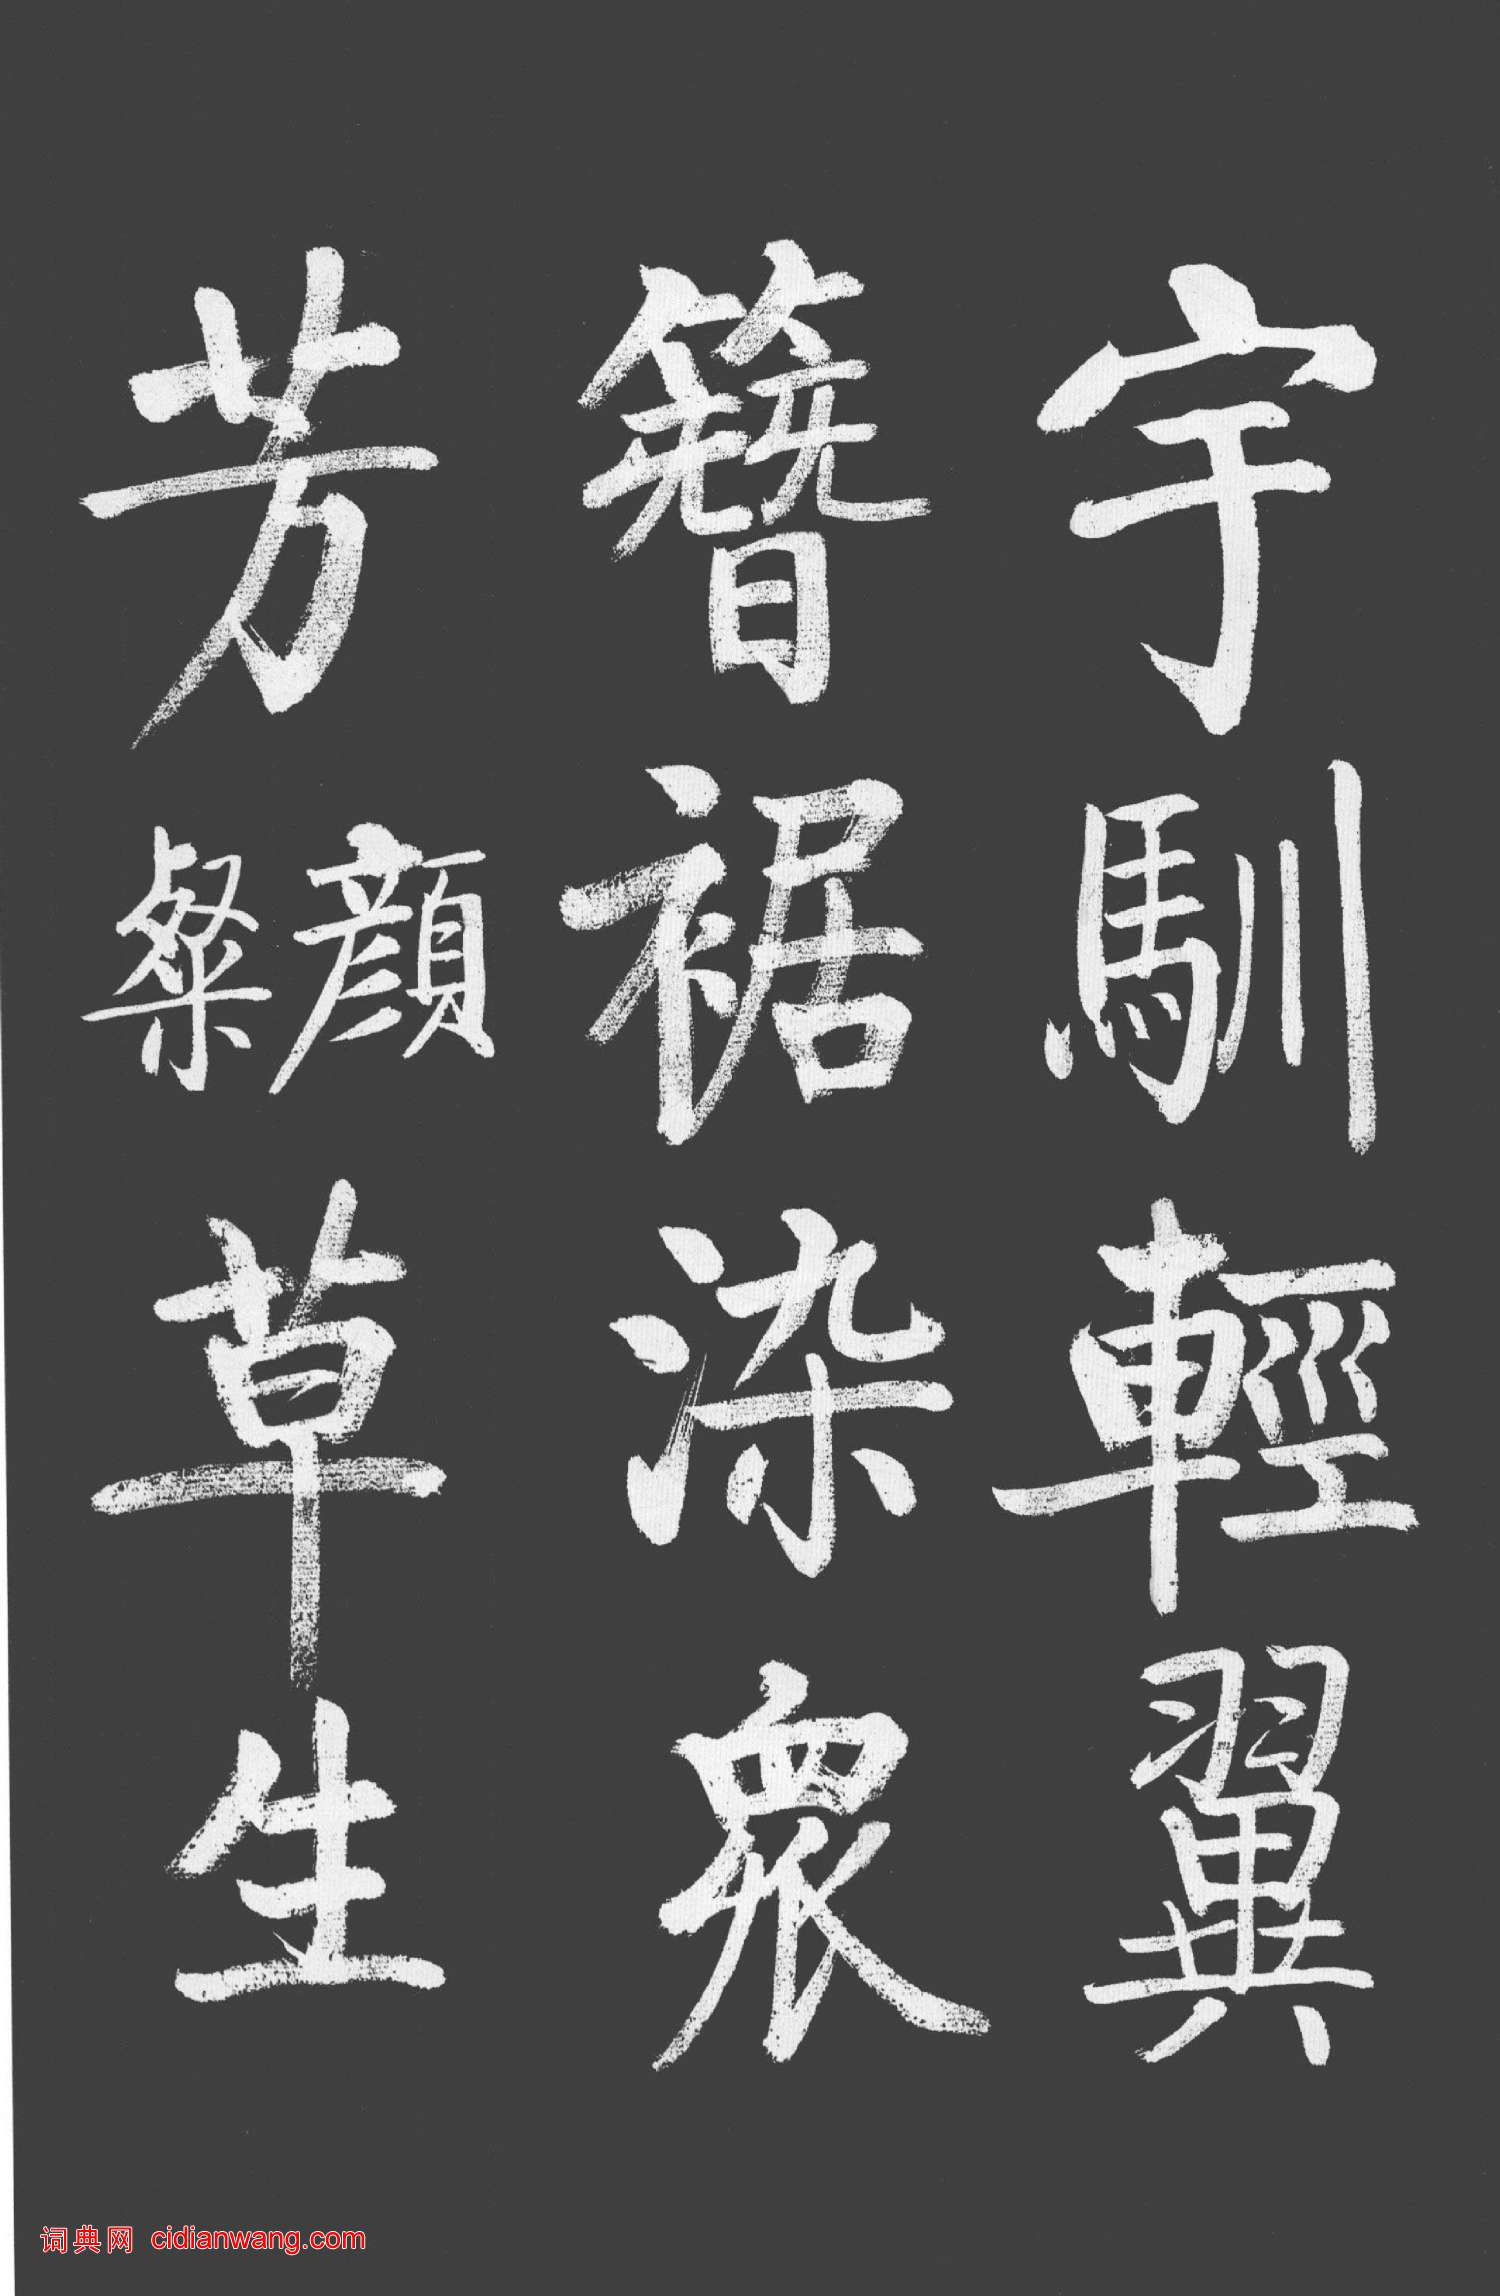 宇馴輕翼
簪裾染衆
芳顏粲草生
词典网 cidianwang.com